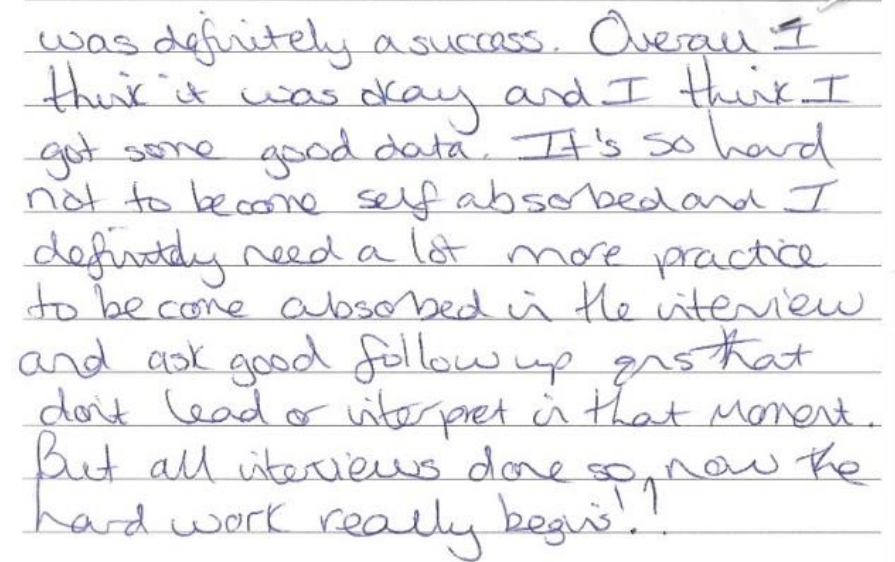 was definitely a success. Overall I
think it was okay and I think I
got some good data. It's so hard
not to become self absorbed and I
definitely need a lot more practice
to become absorbed in the interview
and ask good follow up qns that
don't lead or interpret in that moment.
But all interviews done so, now the
hard work really begins!!